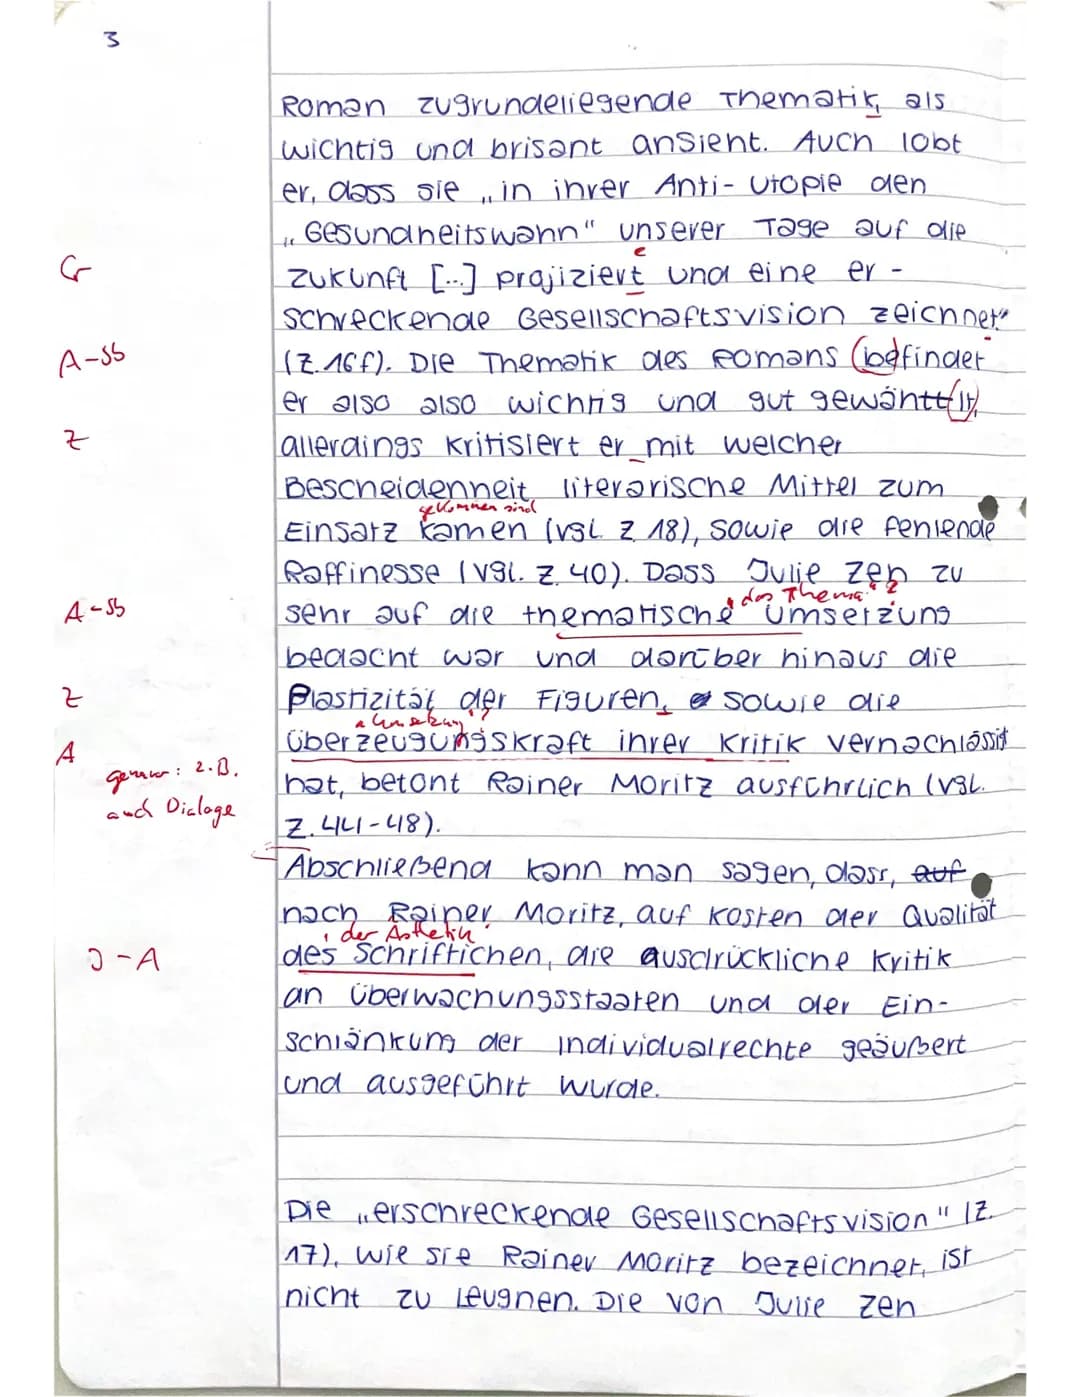 3
Roman zugrundeliegende Thematik als
wichtig und brisant ansieht. Auch lobt
er, dass sie „in ihrer Anti-Utopie den
„Gesundheitswahn" unserer Tage auf die
e
Gr
Zukunft [...] projiziert und eine er-
schreckende Gesellschaftsvision zeichnet"
A-Sb
(Z.16f). Die Thematik des Romans (befindet
er also also wichtig und gut gewählt(lt),
Z
allerdings kritisiert er mit welcher
Bescheidenheit literarische Mittel zum
gekommen sind
Einsatz kamen (vgl. Z 18), sowie die fehlende
Raffinesse (vgl. Z. 40). Dass Julie Zeh zu
"das Thema" ?
A-Sb
sehr auf die thematische Umsetzung
bedacht war und darüber hinaus die
Z
Plastizität der Figuren, sowie die
"Umsetzung"?
A
Überzeugungskraft ihrer Kritik vernachlässigt
genauer: z.B.
hat, betont Rainer Moritz ausführlich (vgl.
auch Dialoge
Z.44-48).
Abschließend kann man sagen, dass, auf
nach Rainer Moritz, auf Kosten der Qualität
der Ästhetik
I-A
des Schriftlichen, die ausdrückliche Kritik
an Überwachungsstaaten und der Ein-
schränkung der Individualrechte geäußert
und ausgeführt wurde.
Die „erschreckende Gesellschaftsvision" (Z.
17), wie sie Rainer Moritz bezeichnet, ist
nicht zu leugnen. Die von Julie Zeh